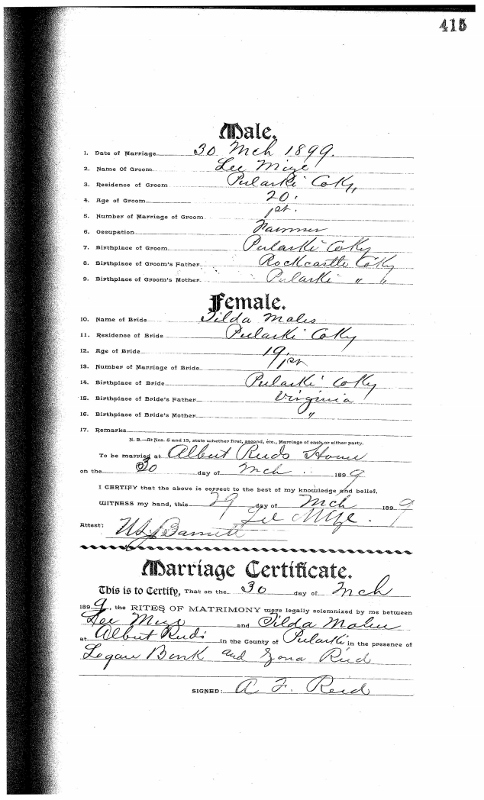 415
Male.
1. Date of Marriage 30 Mch 1899.
2. Name Of Groom Lee Mize
3. Residence of Groom Pularki CoKy,
4. Age of Groom 20.
5. Number of Marriage of Groom 1st.
6. Occupation Farmer
7. Birthplace of Groom Pularki CoKy
8. Birthplace of Groom's Father Rockcastle CoKy
9. Birthplace of Groom's Mother Pularki " "
Female.
10. Name of Bride Tilda
11. Residence of Bride Pularki CoKy
12. Age of Bride 19
13. Number of Marriage of Bride 1st
14. Birthplace of Bride Pularki CoKy
15. Birthplace of Bride's Father Virginia
16. Birthplace of Bride's Mother "
17. Remarks
N. B.—At Nos. 5 and 13, state whether first, second, etc., Marriage of each or either party.
To be married at Albert Home
on the 30 day of Mch 1899
I CERTIFY that the above is correct to the best of my knowledge and belief.
WITNESS my hand, this 29 day of Mch 1899
Lee Mize.
Attest: Barnett
Marriage Certificate.
This is to Certify, That on the 30 day of Mch
1899, the RITES OF MATRIMONY were legally solemnized by me between
Lee Mize and Tilda
at Albert in the County of Pularki in the presence of
Logan and Zona Reid
SIGNED: A. F. Reid